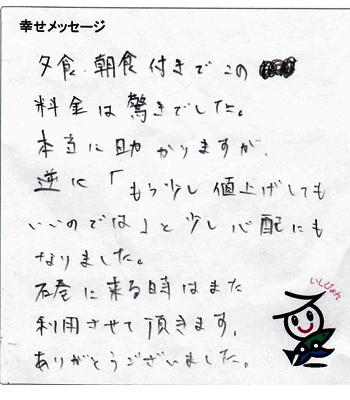 幸せメッセージ
夕食、朝食付きでこの
料金は驚きでした。
本当に助かりますが、
逆に「もう少し値上げしても
いいのでは」と少し心配にも
なりました。
石巻に来る時はまた
利用させて頂きます。
ありがとうございました。
いしぴょん